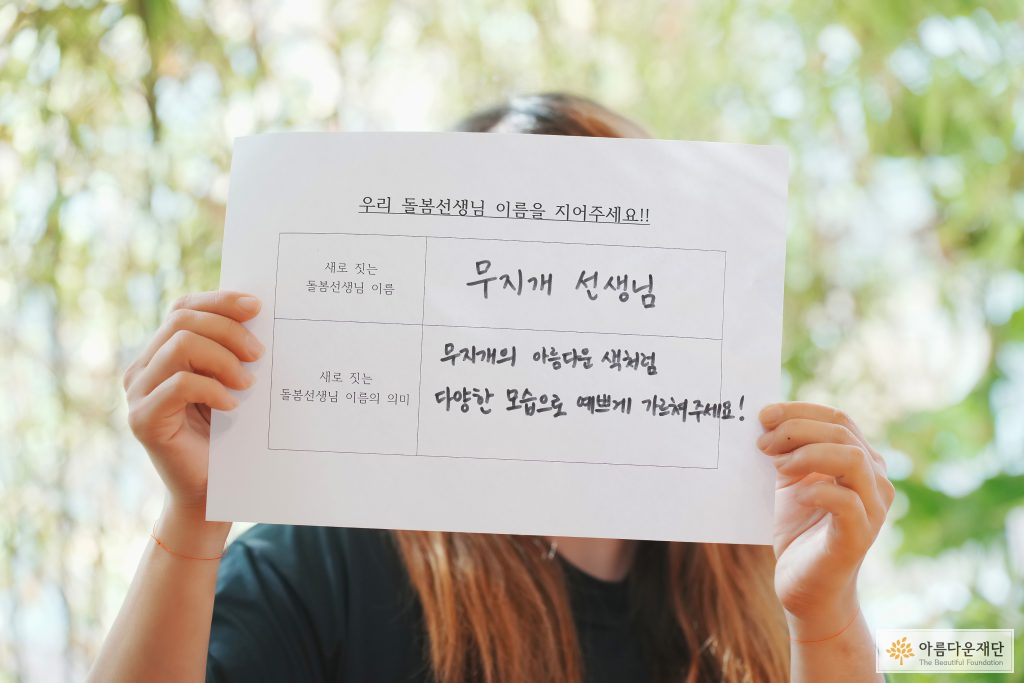 우리 돌봄선생님 이름을 지어주세요!!
새로 짓는
돌봄선생님 이름
무지개 선생님
새로 짓는
돌봄선생님 이름의 의미
무지개의 아름다운 색처럼
다양한 모습으로 예쁘게 가르쳐주세요!
아름다운재단
The Beautiful Foundation